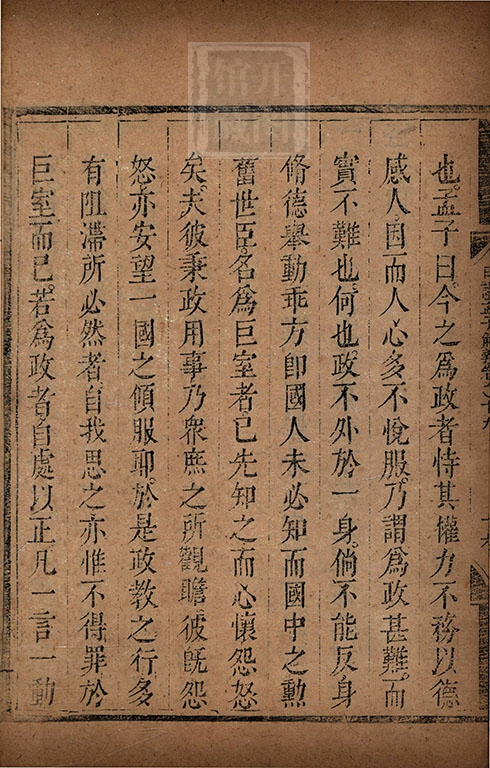 也。孟子曰。今之爲政者恃其權力不務以德
感人。因而人心多不悅服。乃謂爲政甚難。而
實不難也。何也。政不外於一身。倘不能反身
脩德舉動乖方卽國人未必知而國中之勲
舊世臣名爲巨室者已先知之而心懷怨怒
矣。夫彼秉政用事乃衆庶之所觀瞻。彼旣怨
怒亦安望一國之傾服耶。於是政教之行多
有阻滯所必然者。自我思之亦惟不得罪於
巨室而已。若爲政者自處以正凡一言一動